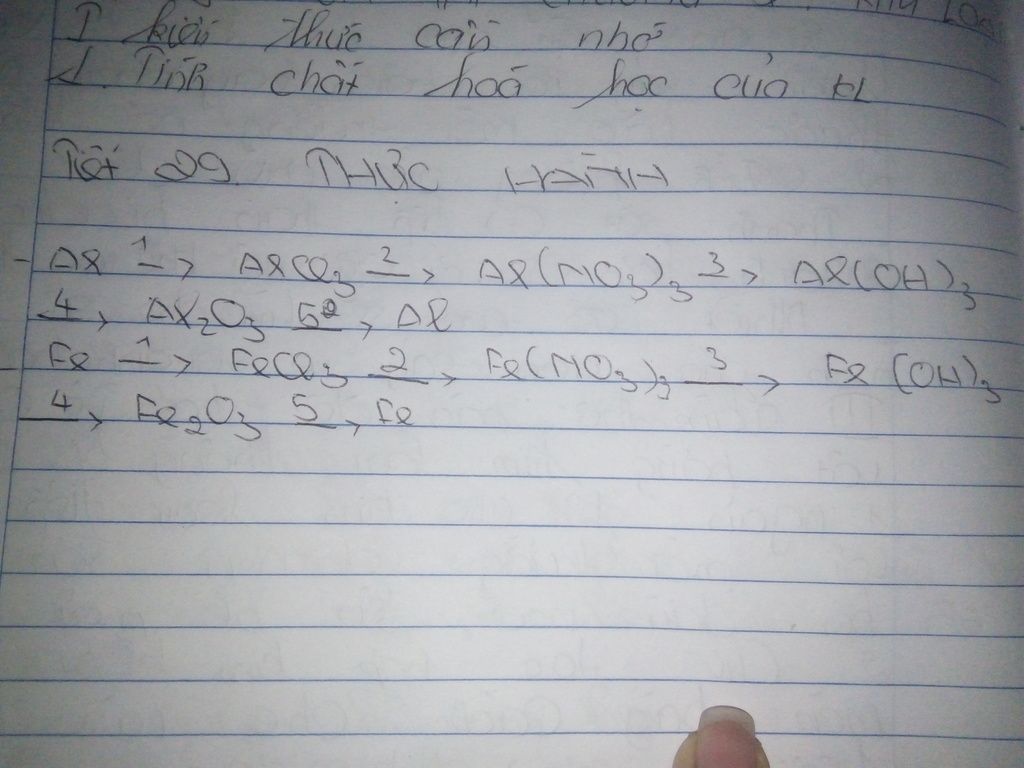 I kiến thức cần nhớ
1. Tính chất hoá học của KL
Tiết 29 THỰC HÀNH
- Al 1→ AlCl3 2→ Al(NO3)3 3→ Al(OH)3
4→ Al2O3 5→ Al
- Fe 1→ FeCl3 2→ Fe(NO3)3 3→ Fe(OH)3
4→ Fe2O3 5→ Fe